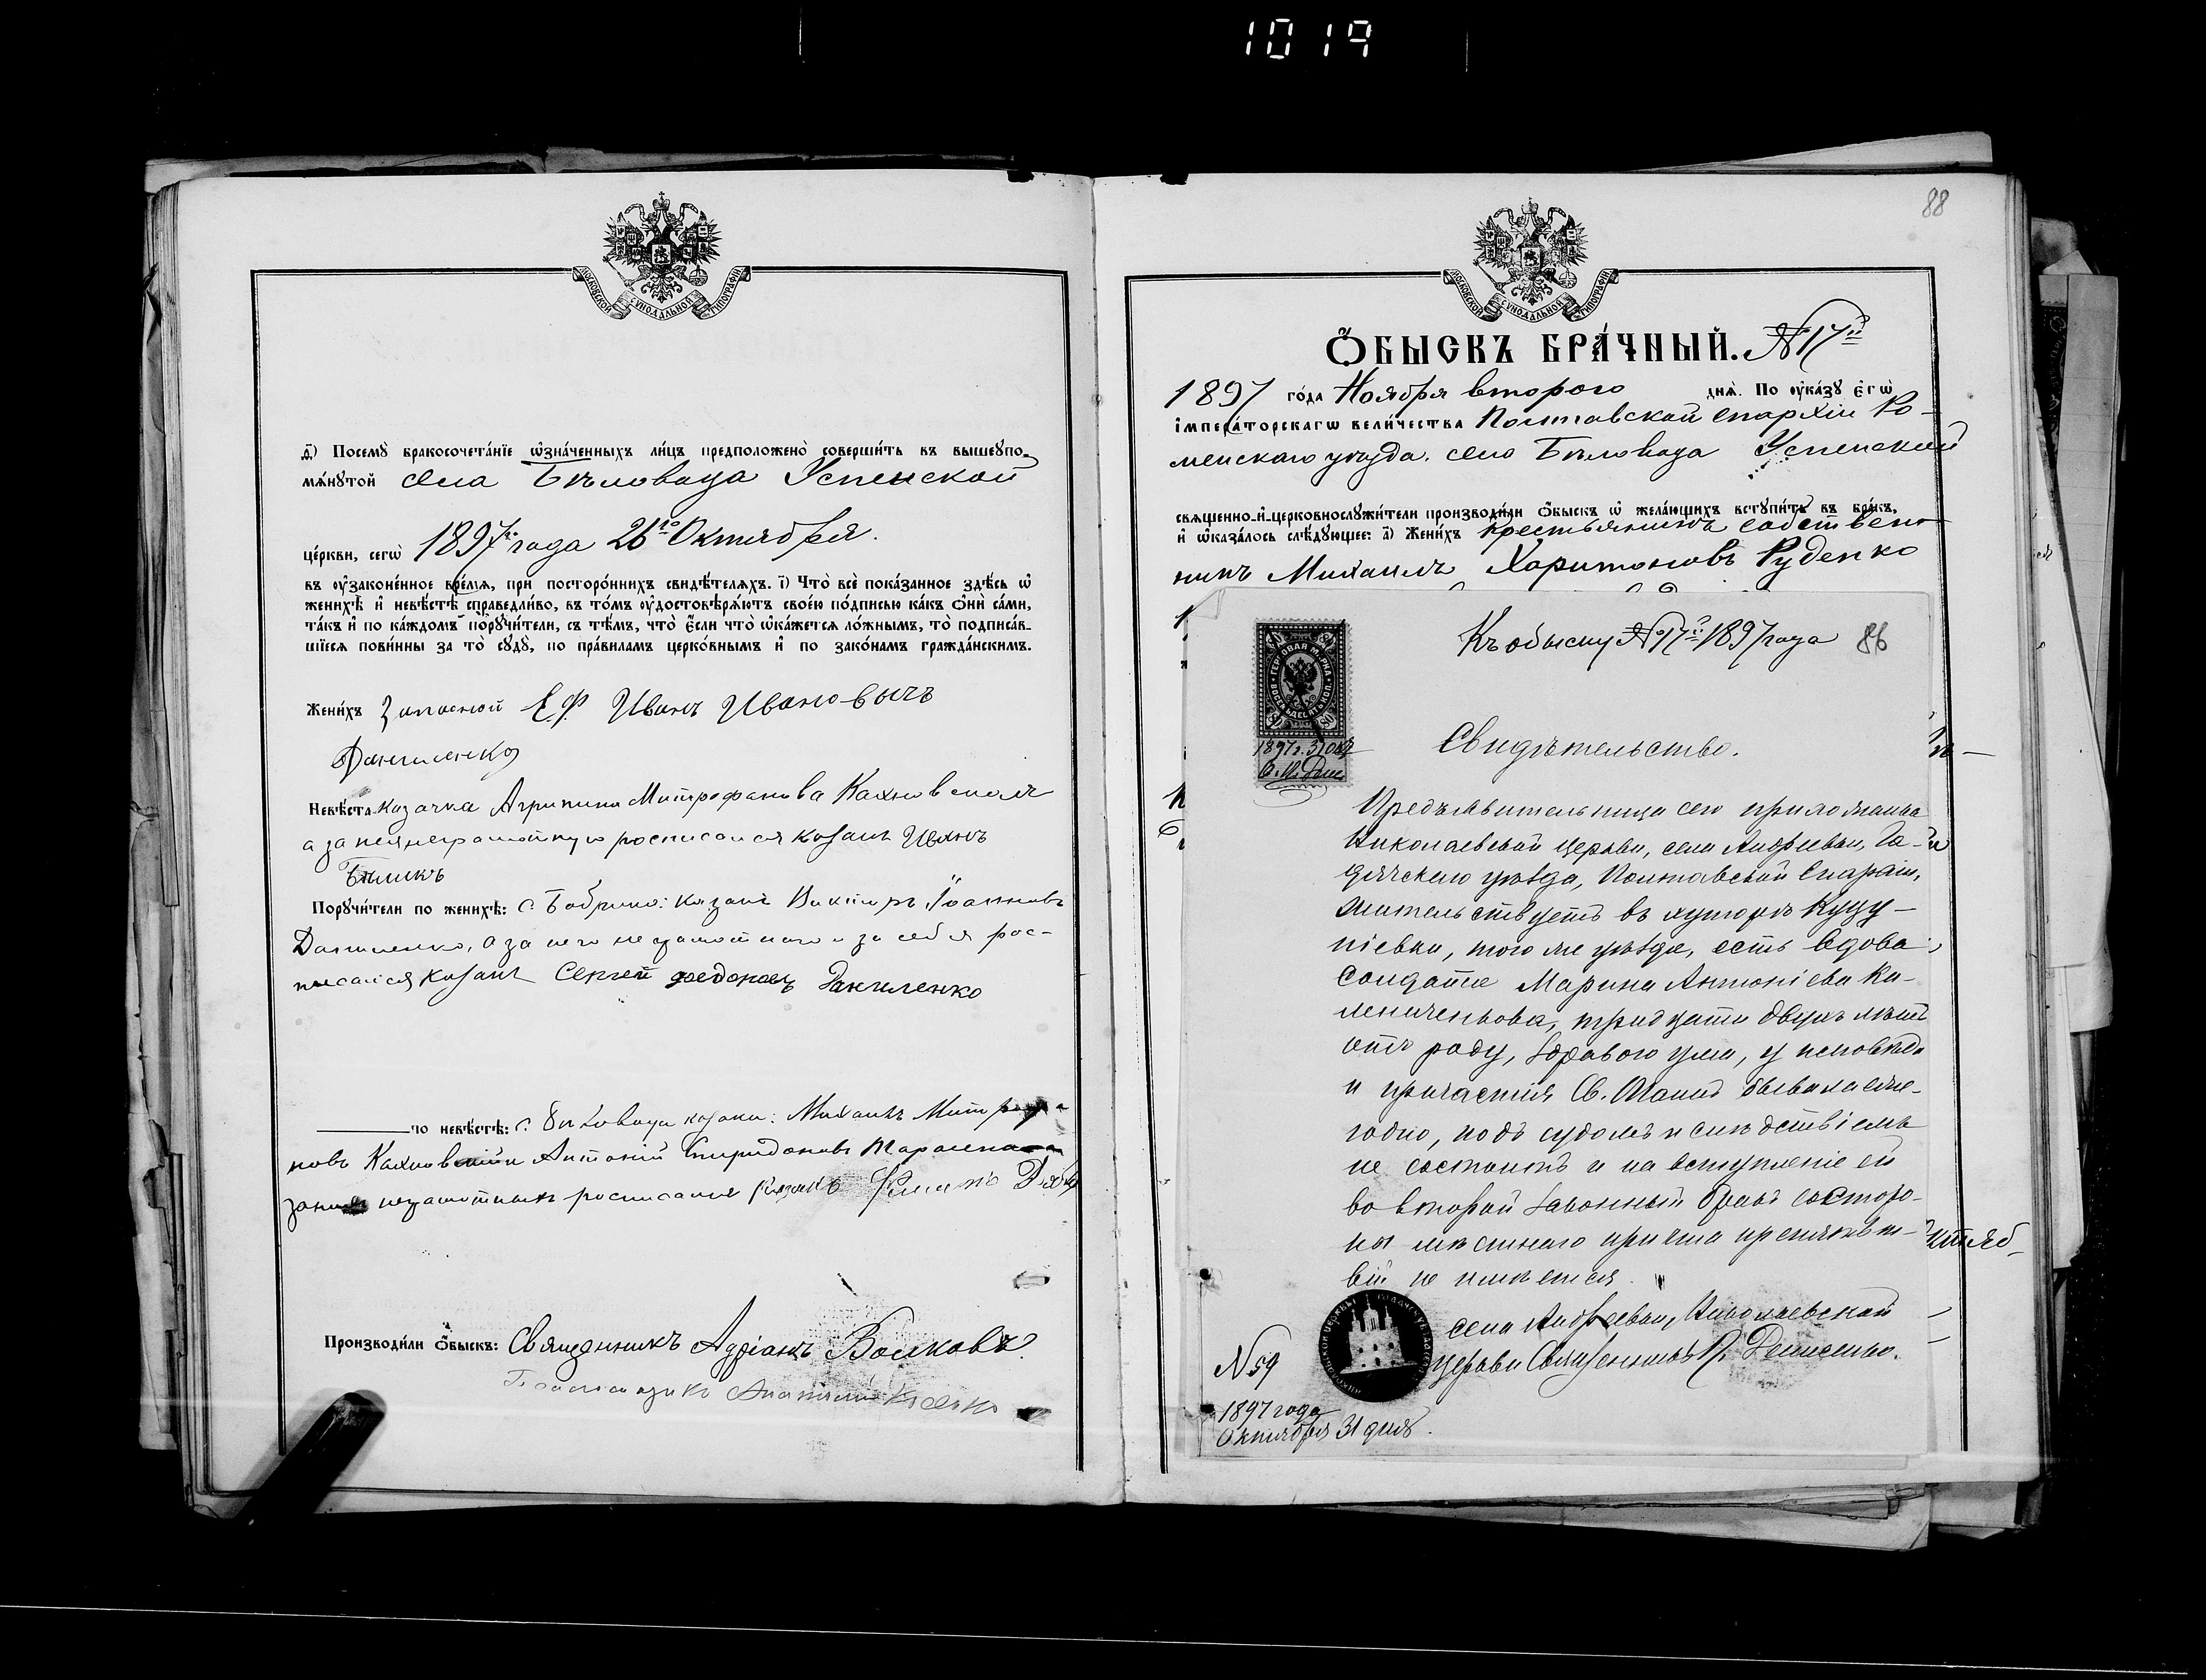 1019
МОСКОВСКОЙ СѴНОДАЛЬНОЙ ТИПОГРАФІИ
ѳ҃) Посемꙋ̀ бракосочета́нїе ѡ҆зна́ченныхъ ли́цъ предположено̀ соверши́ть въ вышеꙋпо-
мѧ́нꙋтой села Бѣловода Успенской
це́ркви, сегѡ̀ 1897го года 26го Октября.
въ ᲂу҆зако́ненное вре́мѧ, при посторо́ннихъ свидѣ́телѧхъ. і҃) Что̀ всѐ пока́занное здѣ́сь ѡ҆
женихѣ̀ и҆ невѣ́стѣ справедли́во, въ то́мъ ᲂу҆достовѣрѧ́ютъ свое́ю по́дписью ка́къ ѻ҆нѝ са́ми,
та́къ и҆ по ка́ждомъ порꙋчи́тели, съ тѣ́мъ, что̀ є҆́сли что̀ ѡ҆ка́жетсѧ ло́жнымъ, то̀ подписа́в-
шїесѧ пови́нны за то̀ сꙋдꙋ̀, по пра́виламъ церко́внымъ и҆ по зако́намъ гражда́нскимъ.
Жени́хъ Запасной Еф. Иванъ Ивановычъ
Даниленко
Невѣ́ста козачка Агрипина Митрофанова Кахновская
а за нея неграмотную росписался козакъ Иванъ
Бѣликъ
Порꙋчи́тели по женихѣ̀: с. Бобрика: козакъ Викторъ Іоанновъ
Даниленко, а за него неграмотнаго и за себя рос-
писался козакъ Сергей Федоровъ Даниленко
по невѣ́стѣ: с. Бѣловода козаки: Михаилъ Митрофа-
новъ Кахновскій и Антоній Спиридоновъ
за неграмотныхъ росписался козакъ
Производи́ли ѻ҆́быскъ: Священникъ Адріанъ Волковъ.
Псаломщикъ
88
МОСКОВСКОЙ СѴНОДАЛЬНОЙ ТИПОГРАФІИ
Ѻ҆́БЫСКЪ БРА́ЧНЫЙ. №17й
1897 го́да Ноября второго днѧ̀. По ᲂу҆ка́зꙋ є҆гѡ̀
і҆мпера́торскагѡ вели́чества Полтавской епархіи Ро-
менскаго уѣзда. село Бѣловода Успенской
свѧще́нно-и҆-церковнослꙋжи́тели производи́ли ѻ҆́быскъ ѡ҆ жела́ющихъ встꙋпи́ть въ бра́къ,
и҆ ѡ҆каза́лось слѣ́дꙋющее: а҃) Жени́хъ крестьянинъ собствен-
никъ Михаилъ Харитоновъ Руденко
Къ обыску №17й 1897 года 86
ГЕРБОВАЯ МАРКА
80
1897 г. 31 Окт
Свидѣтельство.
Предъявительница сего прихожанка
Николаевской церкви, села Андреевки, Га-
дячскаго уѣзда, Полтавской Епархіи,
жительствуетъ въ хуторѣ Куцу-
піевки, того же уѣзда, есть вдова
солдатка Марина Антоніева Ка-
лениченкова, тридцати двухъ лѣтъ
отъ роду, здраваго ума, у исповѣди
и причастія Св. Таинъ бывала еже-
годно, подъ судомъ и слѣдствіемъ
не состоитъ и на вступленіе ей
во второй законный бракъ со сторо-
ны мѣстнаго причта препятст-
вій не имѣется.
села Андреевки, Николаевской
церкви Священникъ
№ 59
1897 года
Октября 31 дня.